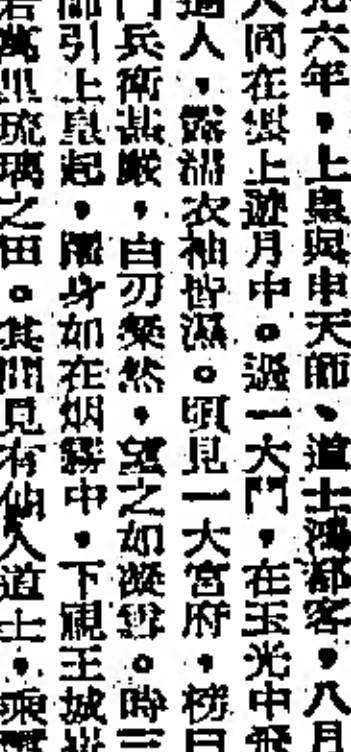 元六年，上皇與申天師、道士鴻都客，八月
人同在雲上遊月中。過一大門，在玉光中飛
逼人，露濡衣袖皆濕。頃見一大宮府，榜曰
門兵衛甚嚴，白刃粲然，望之如凝雪。時三
師引上皇起，躍身如在烟霧中，下視王城
若萬里琉璃之田。其間見有仙人道士，乘雲